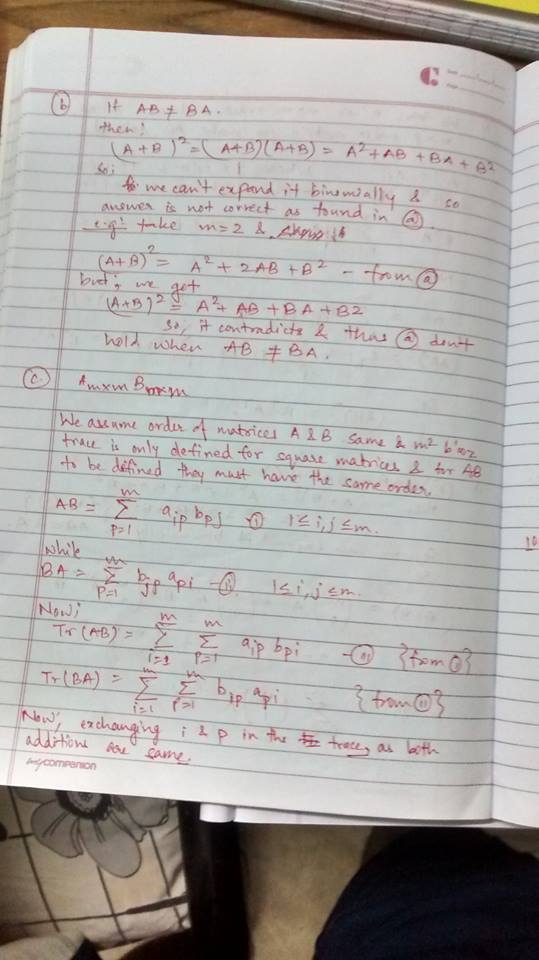 (b) If AB ≠ BA.
then;
(A+B)² = (A+B)(A+B) = A²+AB+BA+B²
so;
we can't expand it binomially & so
answer is not correct as found in (a).
e.g: take m=2 &
(A+B)² = A² + 2AB + B² - from (a)
but; we get
(A+B)² = A² + AB + BA + B2
so, it contradicts & thus (a) don't
hold when AB ≠ BA.
(c.) Amxm Bmxm
We assume order of matrices A & B same & m² b'coz
trace is only defined for square matrices & for AB
to be defined they must have the same order.
AB = ∑_{p=1}^{m} aip bpj - (i) 1≤i,j≤m.
while
BA = ∑_{p=1}^{m} bjp api - (ii) 1≤i,j≤m.
Now;
Tr (AB) = ∑_{i=1}^{m} ∑_{p=1}^{m} aip bpi - (iii) {from (i)}
Tr (BA) = ∑_{i=1}^{m} ∑_{p=1}^{m} bip api {from (ii)}
Now, exchanging i & p in the trace, as both
additions are same.
mycompanion
10